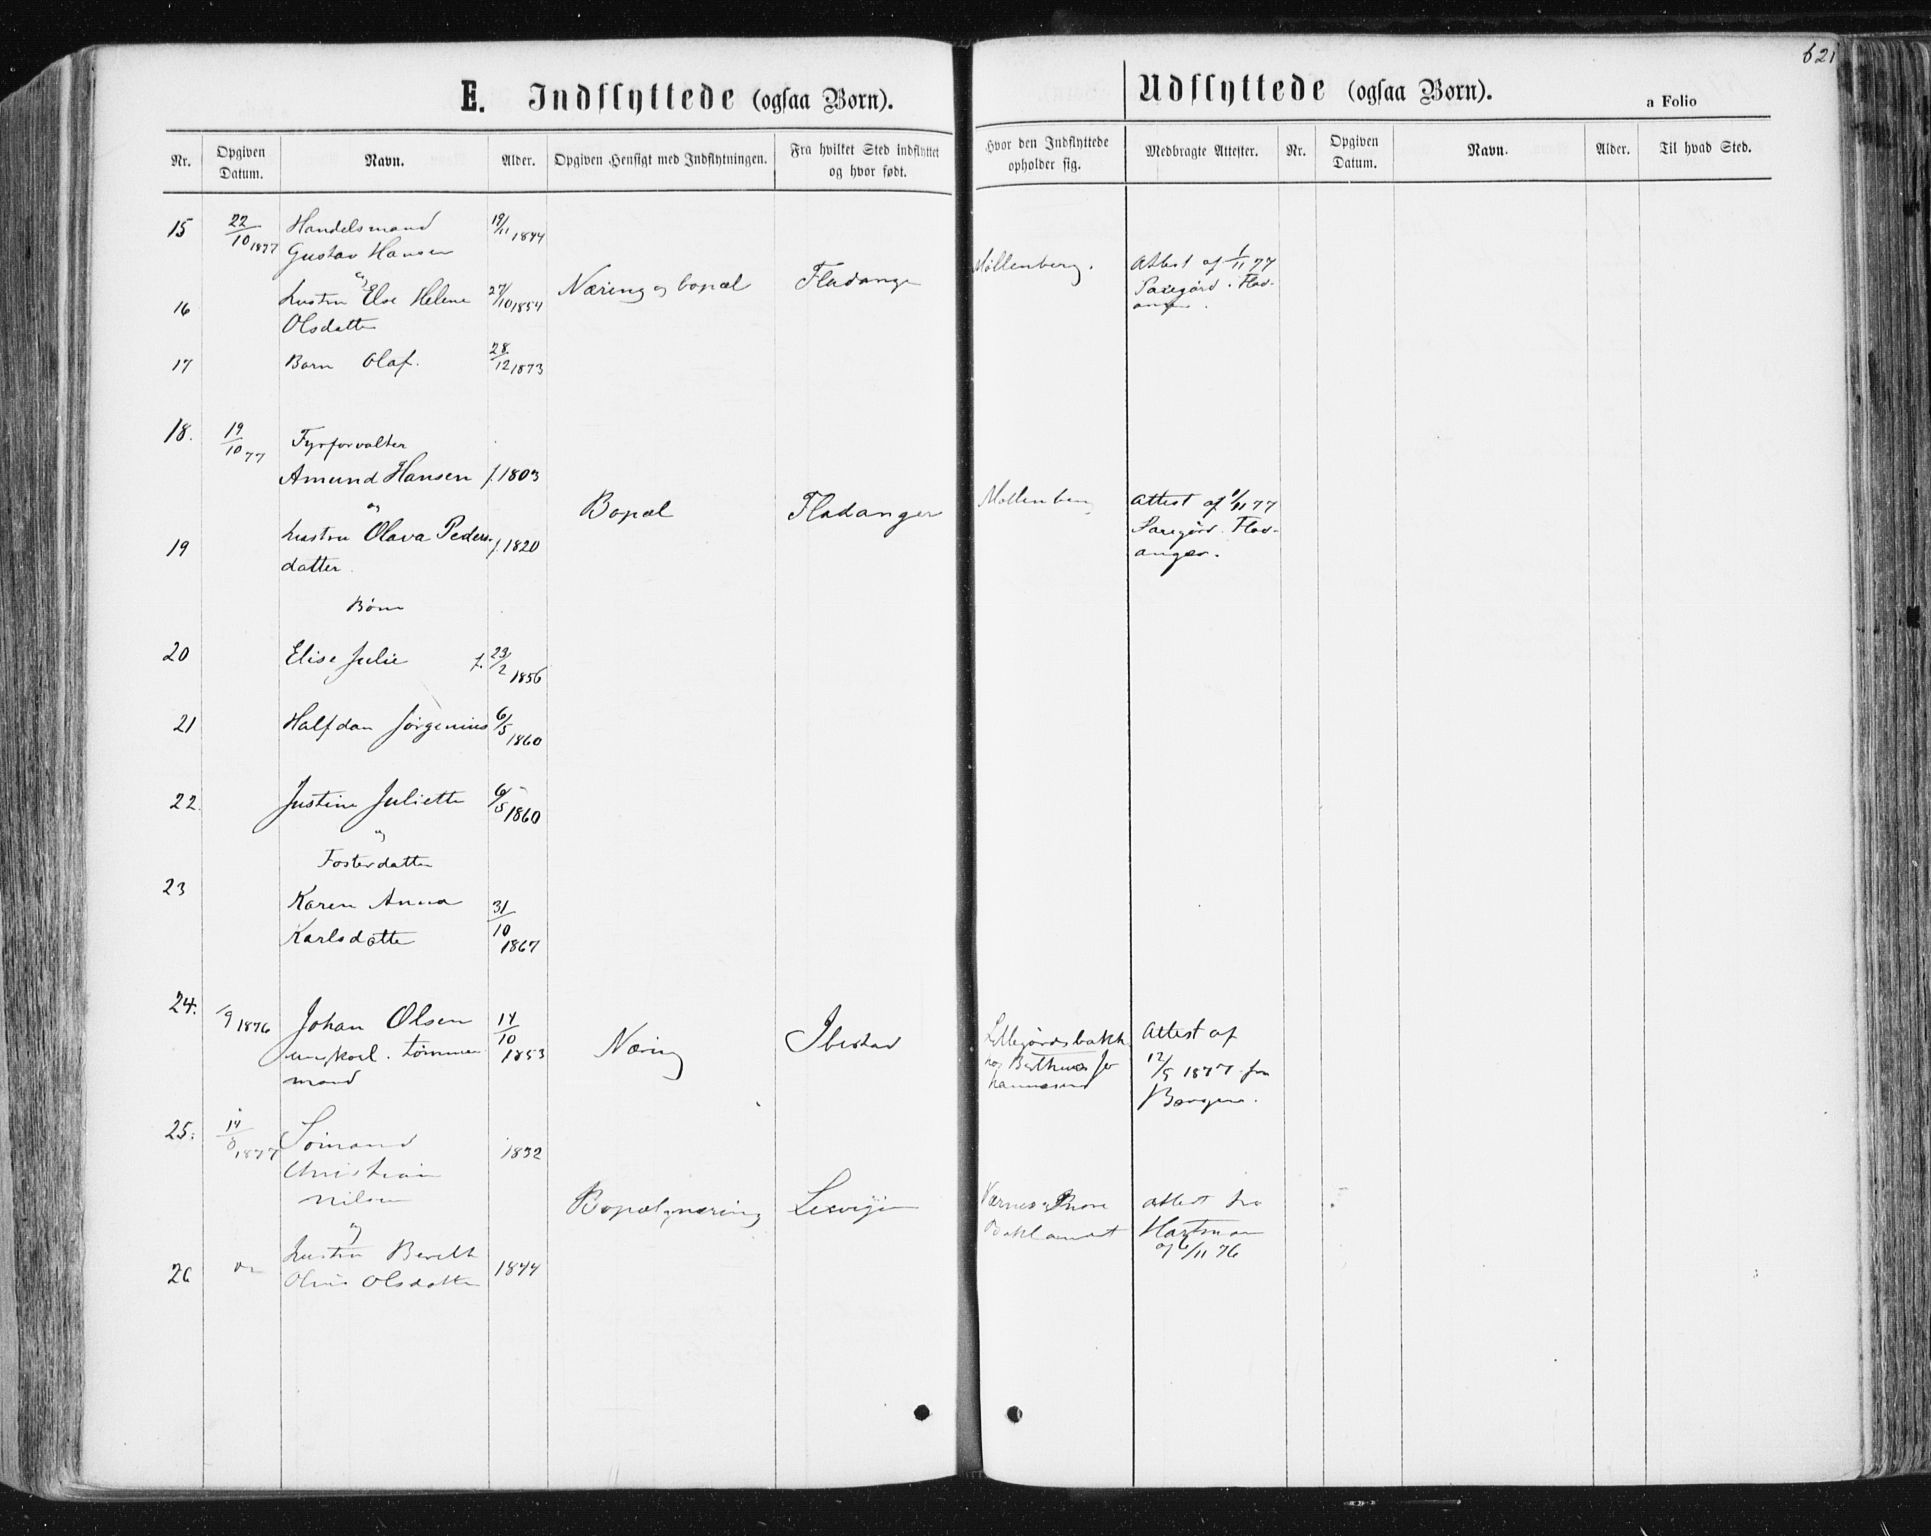 621
E. Indflyttede (ogsaa Børn).
Udflyttede (ogsaa Børn).
a Folio
Nr.
Opgiven Datum.
Navn.
Alder.
Opgiven Hensigt med Indflytningen.
Fra hvilket Sted indflyttet og hvor født.
Hvor den Indflyttede opholder sig.
Medbragte Attester.
Nr.
Opgiven Datum.
Navn.
Alder.
Til hvad Sted.
15 22/10 1877 Handelsmand 19/11 1844
Gustav Hansen
og
Næring og bopæl Fladanger Møllenberg. Attest af 1/11 77
16 Hustru Else Helene 27/10 1854
Olsdatter
17 Barn Olaf. 28/12 1873
18. 19/10 77 Fyrforvalter
Amund Hansen f. 1803
og
Bopæl Fladanger Møllenberg Attest af 1/11 77
19 Hustru Olava Peders- f. 1820
datter
anger.
Børn
20 Elise Julie f. 23/2 1856
21 Halfdan Jørgenius 6/5 1860
22. Justine Juliette 6/5 1860
og
Fosterdatter
23 Karen Anna 31/10 1867
Karlsdatter
24. /9 1876 Johan Olsen 14/10 1853
ungkarl. tømmer
mand
Næring Ibestad Attest af
12/9 1877 fra
Bergen.
25. 14/8 1877 Sömand 1832
Christian
Nilsen
og
Bopæl næring Attest fra
Baklandet Hartman
af 6/11 76
26 Hustru Bereth 1844
Olsdatter